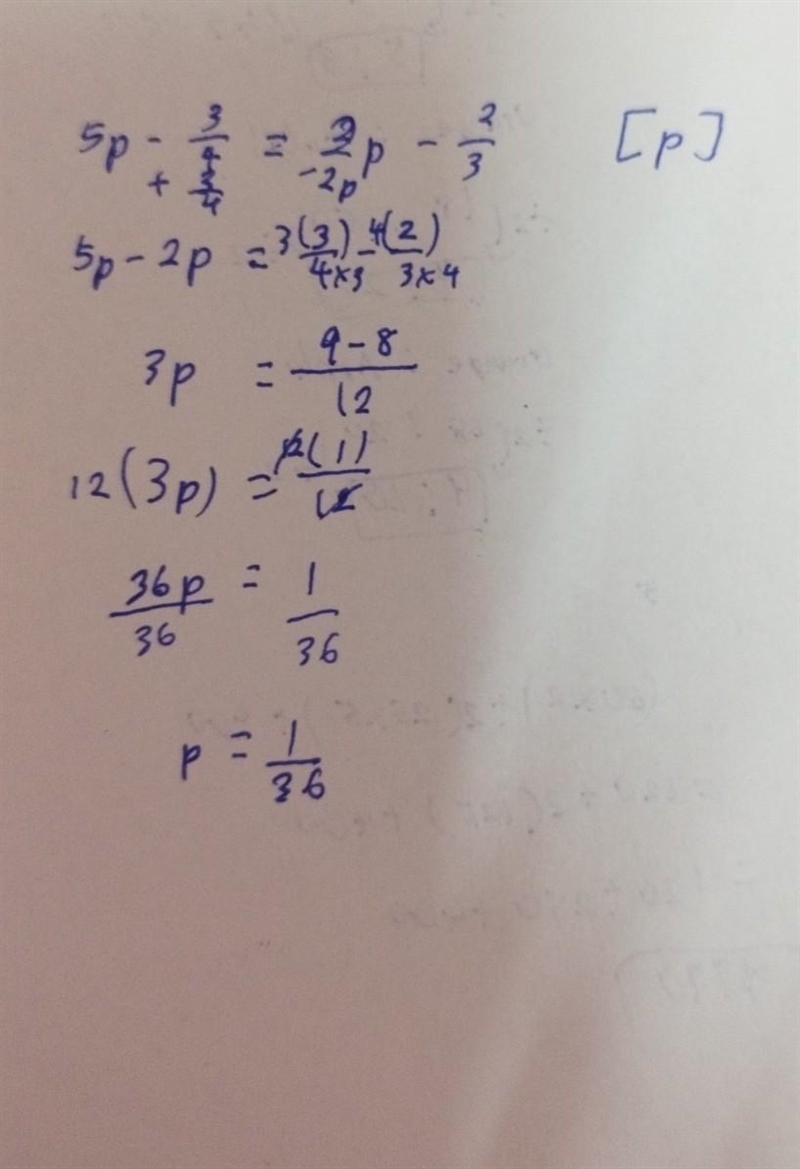 5p - 3/4 = 2p - 2/3 [p]
+ 3/4 -2p
5p - 2p = 3(3)/4x3 - 4(2)/3x4
3p = 9-8/12
12(3p) = 12(1)/12
36p/36 = 1/36
p = 1/36